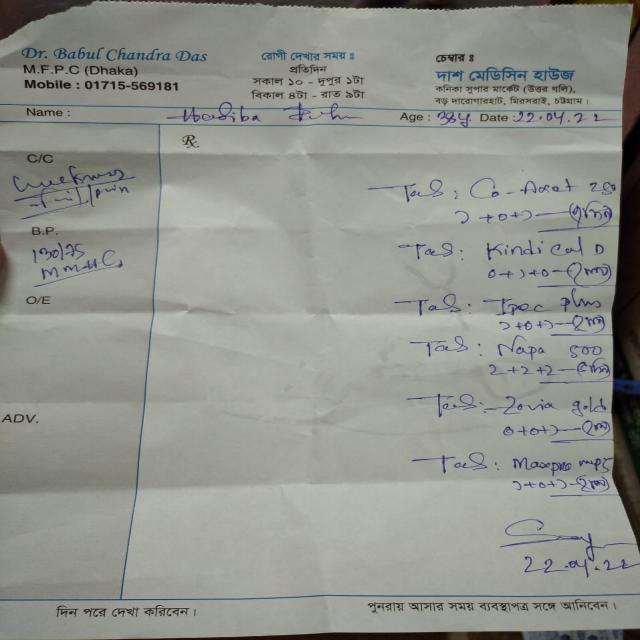 Dr. Babul Chandra Das
M.F.P.C (Dhaka)
Mobile : 01715-569181
রোগী দেখার সময় ঃ
প্রতিদিন
সকাল ১০ - দুপুর ১টা
বিকাল ৪টা - রাত ৯টা
চেম্বার ঃ
দাশ মেডিসিন হাউজ
কনিকা সুপার মার্কেট (উত্তর গলি),
বড় দারোগারহাট, মিরসরাই, চট্টগ্রাম।
Name : Hasiba
Age : 38y Date : 22.04.22
C/C
B.P.
130/75
O/E
ADV.
Rx
Tab : Co-
১+০+১
Tab : Kindical D
০+১+০
Tab : Ipec plus
১+০+১
Tab : Napa 500
2+2+2
Tab : Zovia gold
০+০+১
Tab : Maxpro mups
১+০+১
22.04.22
দিন পরে দেখা করিবেন।
পুনরায় আসার সময় ব্যবস্থাপত্র সঙ্গে আনিবেন।